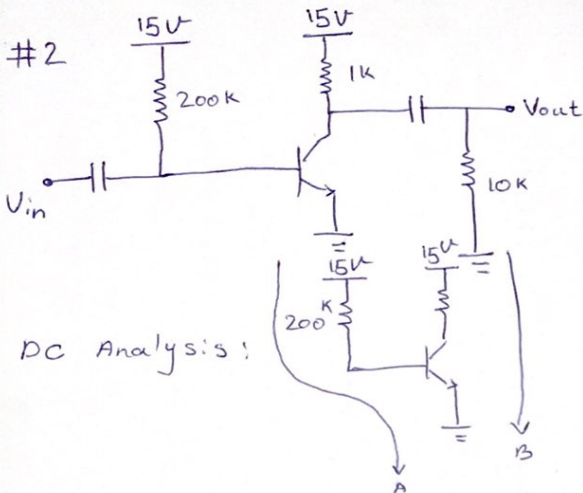 #2
15V
15V
200K
1K
Vout
Vin
10K
15V
15V
200 K
DC Analysis:
A
B